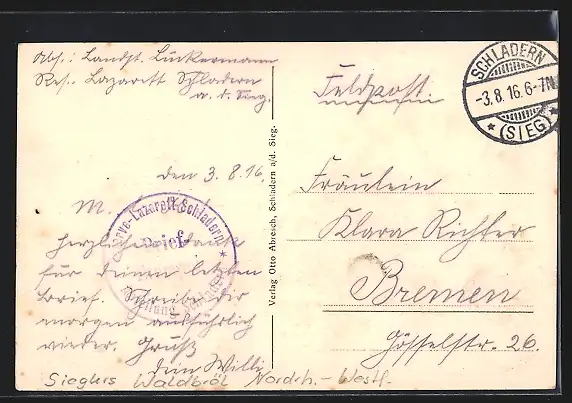 Abs.: Landst. Lückermann
Res. Lazarett Schladern
a. d. Sieg.
Feldpost.
SCHLADERN
-3.8.16.6-7N.
* (SIEG) *
den 3.8.16.
M.
Herzlichen Dank
für deinen letzten
Brief. Schreibe dir
morgen ausführlich
wieder. Gruß
dein Willi
Reserve-Lazarett Schladern
Brief
Verlag Otto Abresch, Schladern a/d. Sieg.
Fräulein
Klara Richter
Bremen
Gösselstr. 26.
Sieglers Waldbröl Nordrh.-Westf.